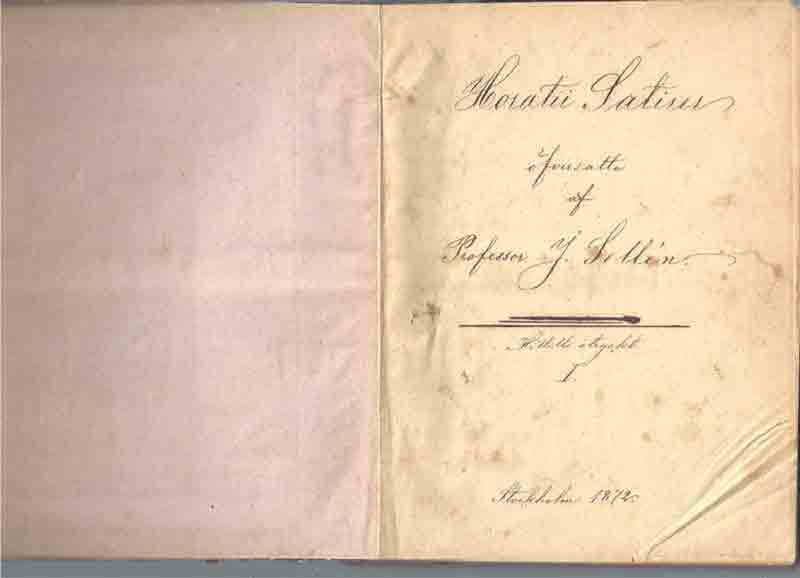 Horatii Satirer
öfversatte
af
Professor J. Sellén.
Hittills otryckt
I.
Stockholm 1872.